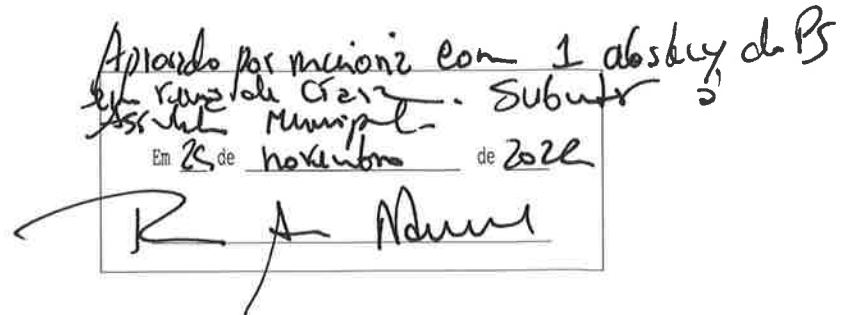 Aprovado por maioria com 1 abstenç do PS
em reunião de Câmara. Submeter à
Assembl Municipal.
Em 25 de novembro de 2022